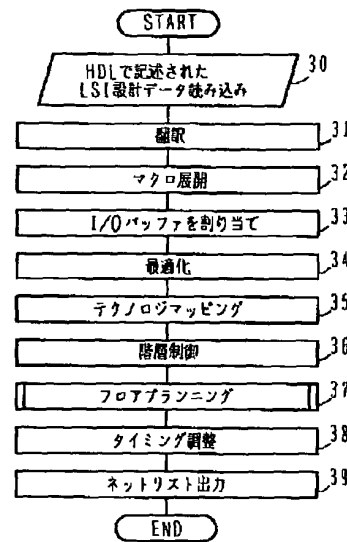 START
HDLで記述された
LSI設計データ読み込み
30
翻訳
31
マクロ展開
32
I/Oバッファを割り当て
33
最適化
34
テクノロジマッピング
35
階層制御
36
フロアプランニング
37
タイミング調整
38
ネットリスト出力
39
END